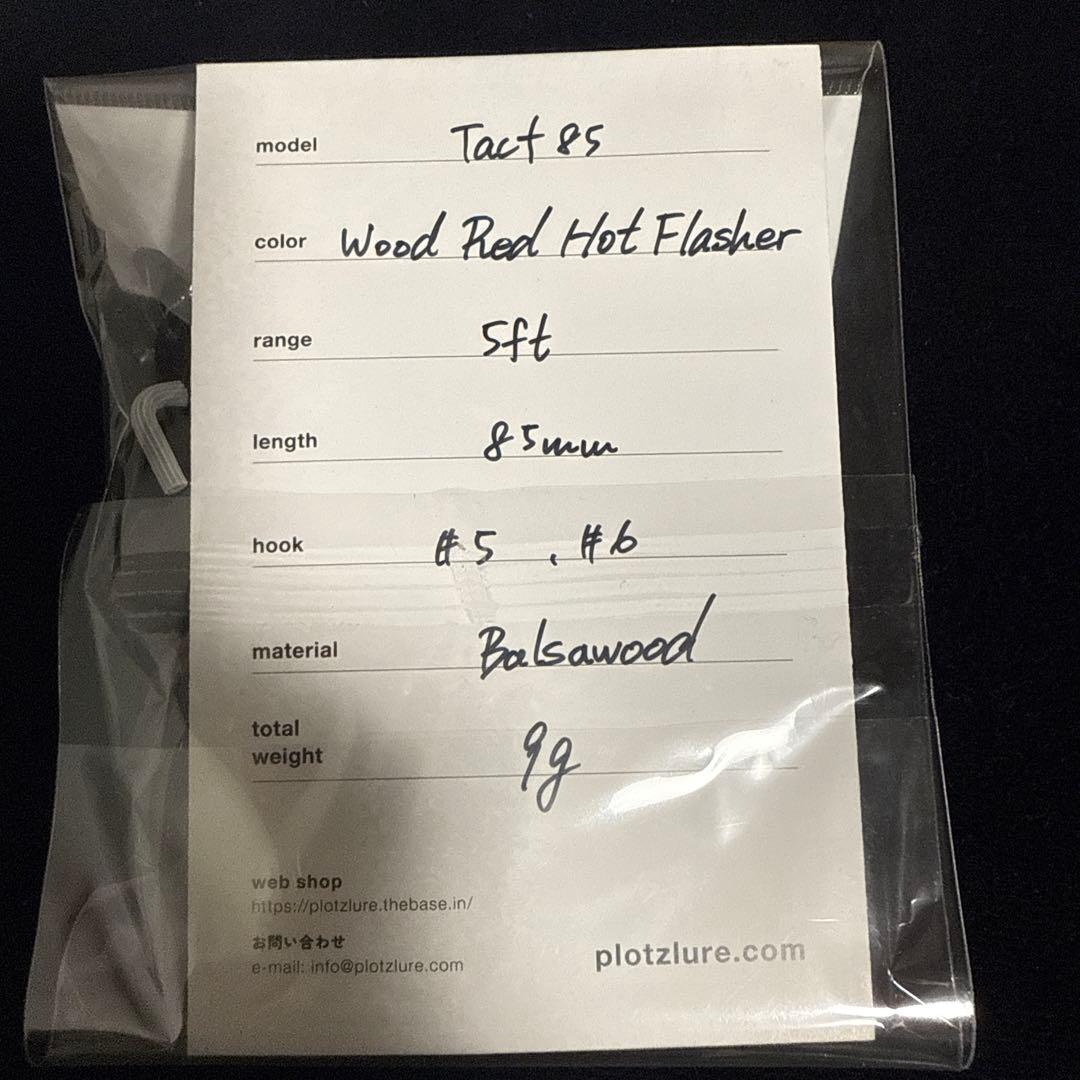 model Tact 85
color Wood Red Hot Flasher
range 5ft
length 85mm
hook #5 , #6
material Balsawood
total
weight 9g
web shop
https://plotzlure.thebase.in/
お問い合わせ
e-mail: info@plotzlure.com
plotzlure.com